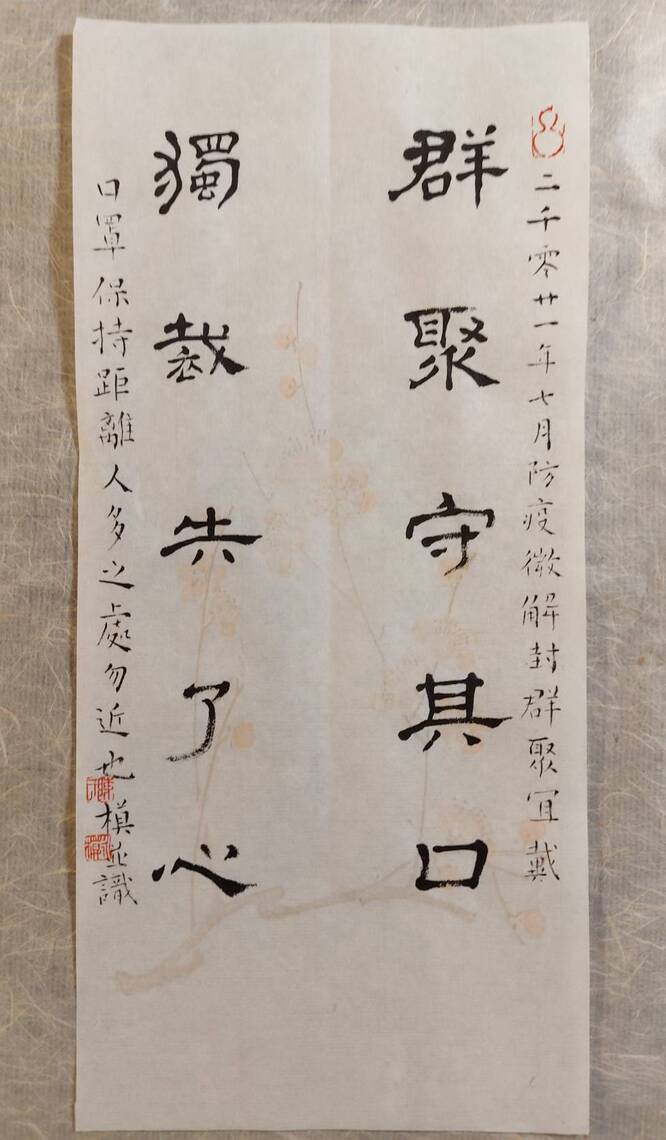 二千零廿一年七月防疫微解封群聚宜戴
群聚守其口
獨裁失了心
口罩保持距離人多之處勿近也模並識